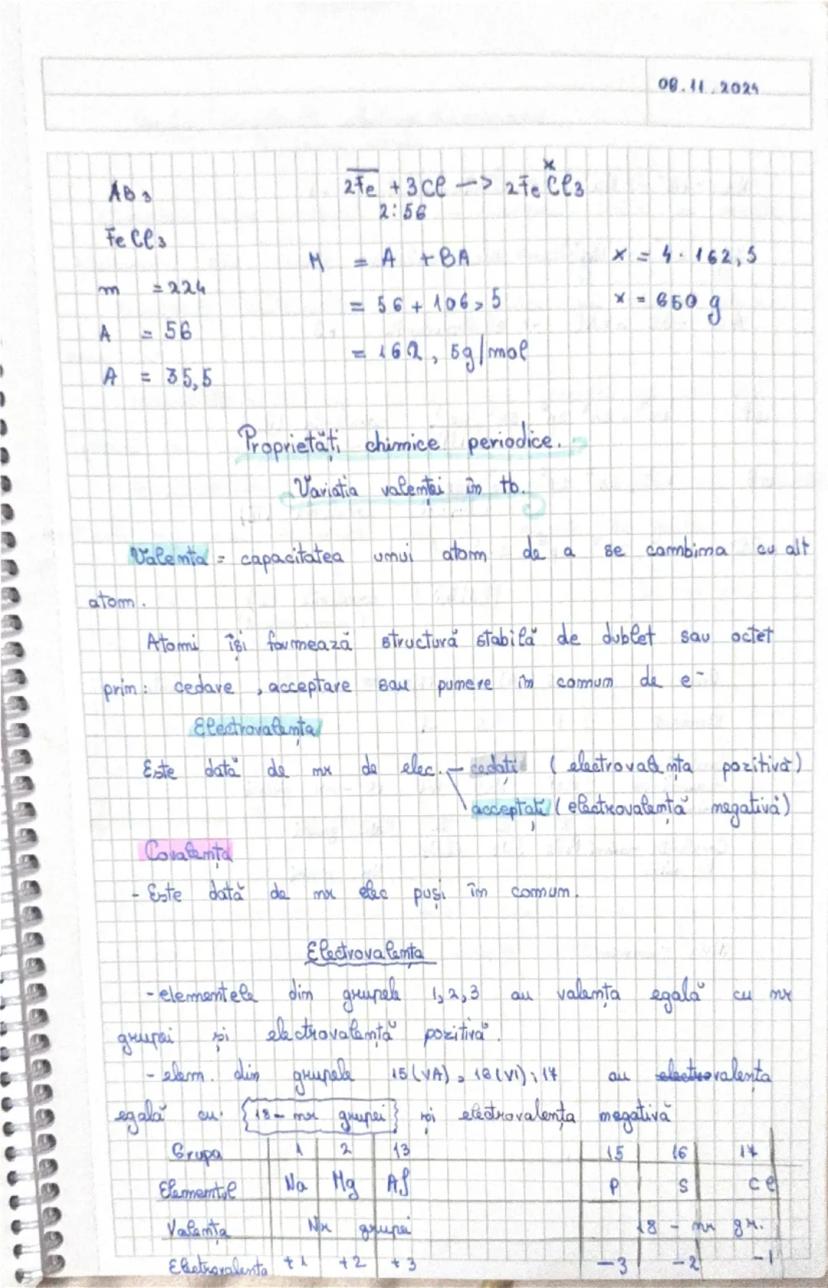 08.11.2024
AB3
2Fe + 3Cl -> 2FeCl3
x
2:56
FeCl3
M = A + BA
x = 4 · 162,5
m = 224
= 56 + 106,5
x = 650 g
A = 56
= 162, 5g/mol
A = 35,5
Proprietăți chimice periodice.
Variatia valenței în tb.
Valența = capacitatea unui atom de a se combina cu alt
atom.
Atomi își formează structură stabilă de dublet sau octet
prin: cedare, acceptare sau punere în comun de e⁻
Electrovalența
Este dată de nr de elec. – cedați (electrovalența pozitivă)
acceptați (electrovalență negativă)
Covalența
- Este dată de nr elec puși în comun.
Electrovalența
- elementele din grupele 1,2,3 au valența egală cu nr
grupei și electrovalență pozitivă.
- elem. din grupele 15(VA), 16(VI); 17 au valența
egală cu {18 - nr grupei} și electrovalența negativă
Grupa 1 2 13 15 16 17
Elementul Na Mg Al P S Cl
Valența Nr grupei 18 - nr gr.
Electrovalența +1 +2 +3 -3 -2 -1